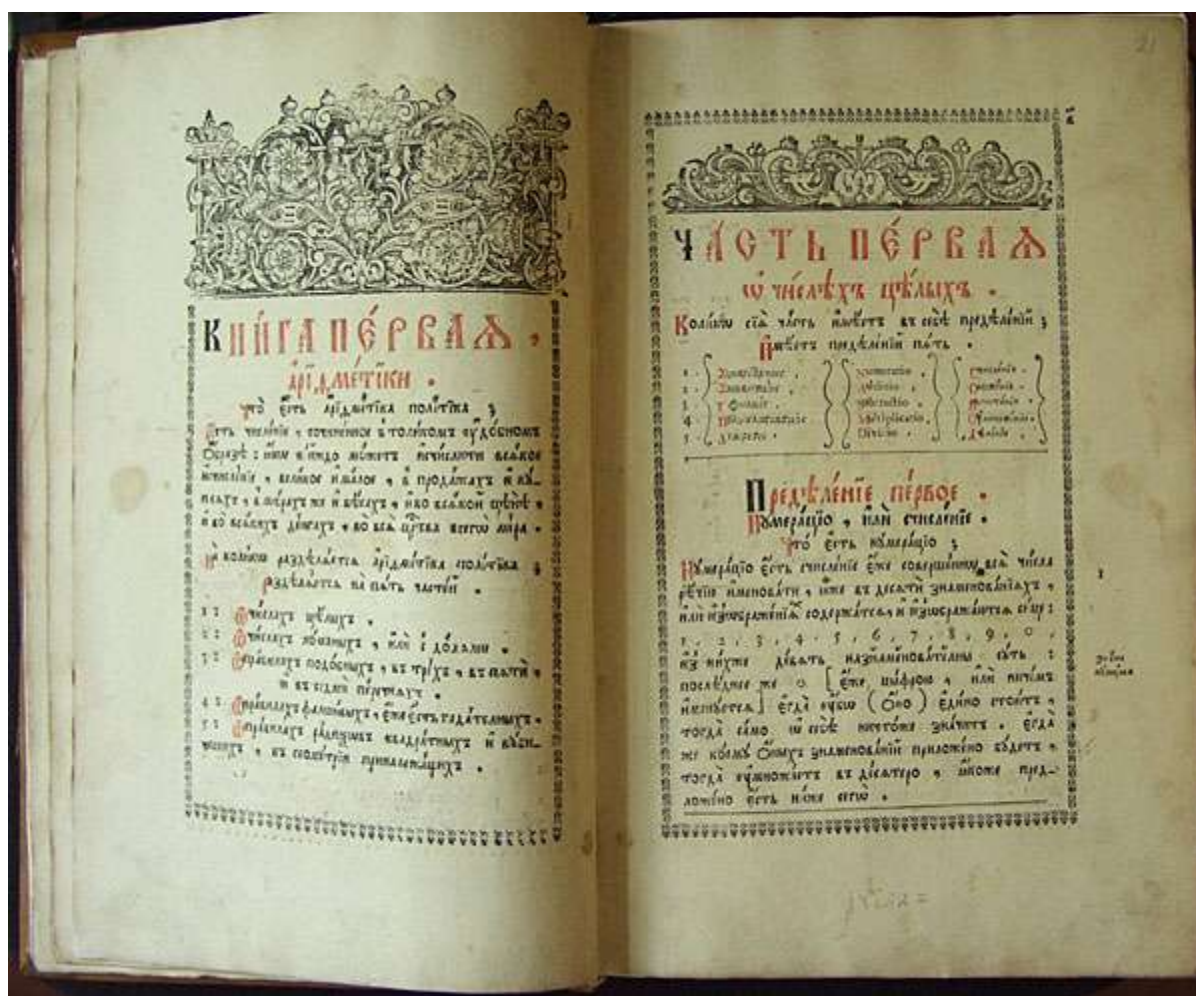 КНИ́ГА ПЕ́РВАѦ ,
А҆РІѲМЕ́ТІКИ .
Что̀ є҆́сть а҆рїѳме́тїка полїті́ка ;
є҆́сть числе́нїе
ѡ҆́бразѣ : может и҆счислити всѧ́кое
и҆счисленїе , вели́кое и҆ ма́лое , в прода́жахъ и҆ кꙋ-
плѧхъ , в мѣ́рахъ же и҆ вѣ́сахъ , и҆ во всѧ́кой цѣнѣ̀ ,
и҆ во всѧ́кихъ де́ньгахъ , во всѧ̀ црⷭ҇тва всегѡ̀ мі́ра .
На коли́кѡ раздѣлѧ́етсѧ а҆рїѳме́тїка полїті́ка ;
Раздѣлѧ́етсѧ на пѧ́ть часте́й .
1 : Ѡ҆ чи́слахъ цѣ́лыхъ .
2 : Ѡ҆ чи́слахъ ло́маныхъ , и҆лѝ с̾ до́лѧми .
3 : Ѡ҆ пра́вилахъ подо́бныхъ , въ трѐхъ , въ пѧтѝ ,
и҆ въ седмѝ пе́речнѧхъ .
4 : Ѡ҆ пра́вилахъ фалши́выхъ , є҆́же є҆́сть гада́телныхъ .
5 : Ѡ҆ пра́вилахъ ра́диѯѡвъ квадра́тныхъ и҆ кꙋби-
ческихъ , къ геѡме́трїи принадлежа́щихъ .
21
ЧА́СТЬ ПЕ́РВАѦ
Ѡ҆ чи́слѣхъ цѣ́лыхъ .
Коли́кѡ сїѧ̀ ча́сть и҆мѣ́етъ въ себѣ̀ предѣле́нїй ;
И҆мѣ́етъ предѣле́нїй пѧ́ть .
1 . нꙋмера́цїо , счисле́нїе .
2 . а҆ддїцїо ,
3 .
4 . мꙋлтипликацїо , ᲂу҆множе́нїе .
5 . дивизїо , дѣле́нїе .
Предѣле́нїе пе́рвое .
Нꙋмера́цїо , и҆лѝ счисле́нїе .
Что̀ є҆́сть нꙋмера́цїо ;
Нꙋмера́цїо є҆́сть счисле́нїе є҆́же соверше́ннѡ всѧ̀ чи́сла
рѣ́чїю и҆менова́ти , ꙗ҆̀же въ десѧтѝ знаменова́нїихъ ,
и҆лѝ и҆зѡбраже́нїихъ содержа́тсѧ , и҆ и҆зѡбража́ютсѧ си́це :
1 , 2 , 3 , 4 , 5 , 6 , 7 , 8 , 9 , 0 ,
и҆з̾ ни́хже де́вѧть назнаменова́телны сꙋ́ть :
послѣ́днее же 0 [ є҆́же ци́фрою , и҆лѝ ничи́мъ
и҆менꙋ́етсѧ ] є҆гда̀ ᲂу҆́бѡ ( ѻ҆́но ) є҆ди́но стои́тъ ,
тогда̀ са́мо ѡ҆ себѣ̀ ничто́же зна́читъ . є҆гда́
же коемꙋ̀ ѻ҆́ныхъ знаменова́нїй приложе́но бꙋ́детъ ,
тогда̀ ᲂу҆множа́етъ въ де́сѧтеро , ꙗ҆́коже пред-
ложе́но є҆́сть ни́же сегѡ̀ .